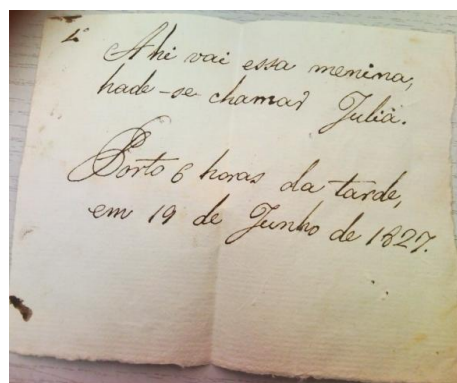 1ª
Ahi vai essa menina,
hade-se chamar Julia.
Porto 6 horas da tarde,
em 19 de Junho de 1827.